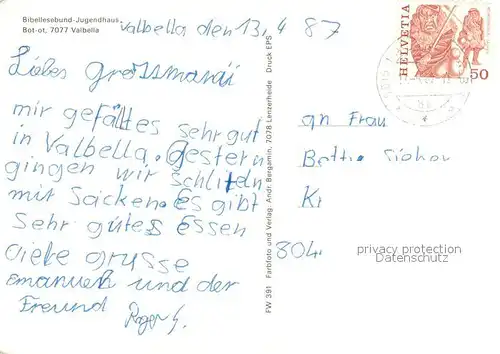 Bibellesebund-Jugendhaus
Bot-ot, 7077 Valbella
Valbella den 13.4 87
Liebes Grossmami
mir gefält es sehr gut
in Valbella. Gestern
gingen wir schliteln
mit Säcken. Es gibt
Sehr gutes Essen
Liebe grusse
emanuel und der
Freund Roger S.
FW 391 Farbfoto und Verlag: Andr. Bergamin, 7078 Lenzerheide Druck EPS
HELVETIA
50
an Frau
804
privacy protection
Datenschutz